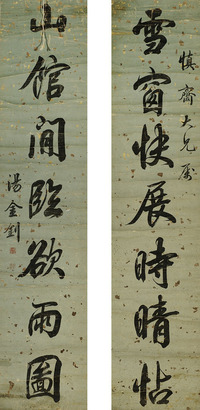 慎齋大兄属
雪窗快展時晴帖
山館閒臨欲雨圖
湯金釗